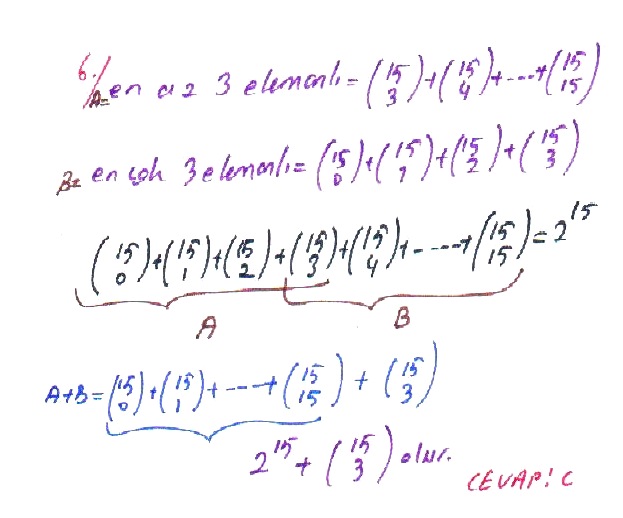 6./ A= en az 3 elemanlı = (15 3) + (15 4) + ---- + (15 15)
B= en çok 3 elemanlı = (15 0) + (15 1) + (15 2) + (15 3)
(15 0) + (15 1) + (15 2) + (15 3) + (15 4) + ---- + (15 15) = 2^15
A B
A+B = (15 0) + (15 1) + ---- + (15 15) + (15 3)
2^15 + (15 3) olur.
CEVAP: C